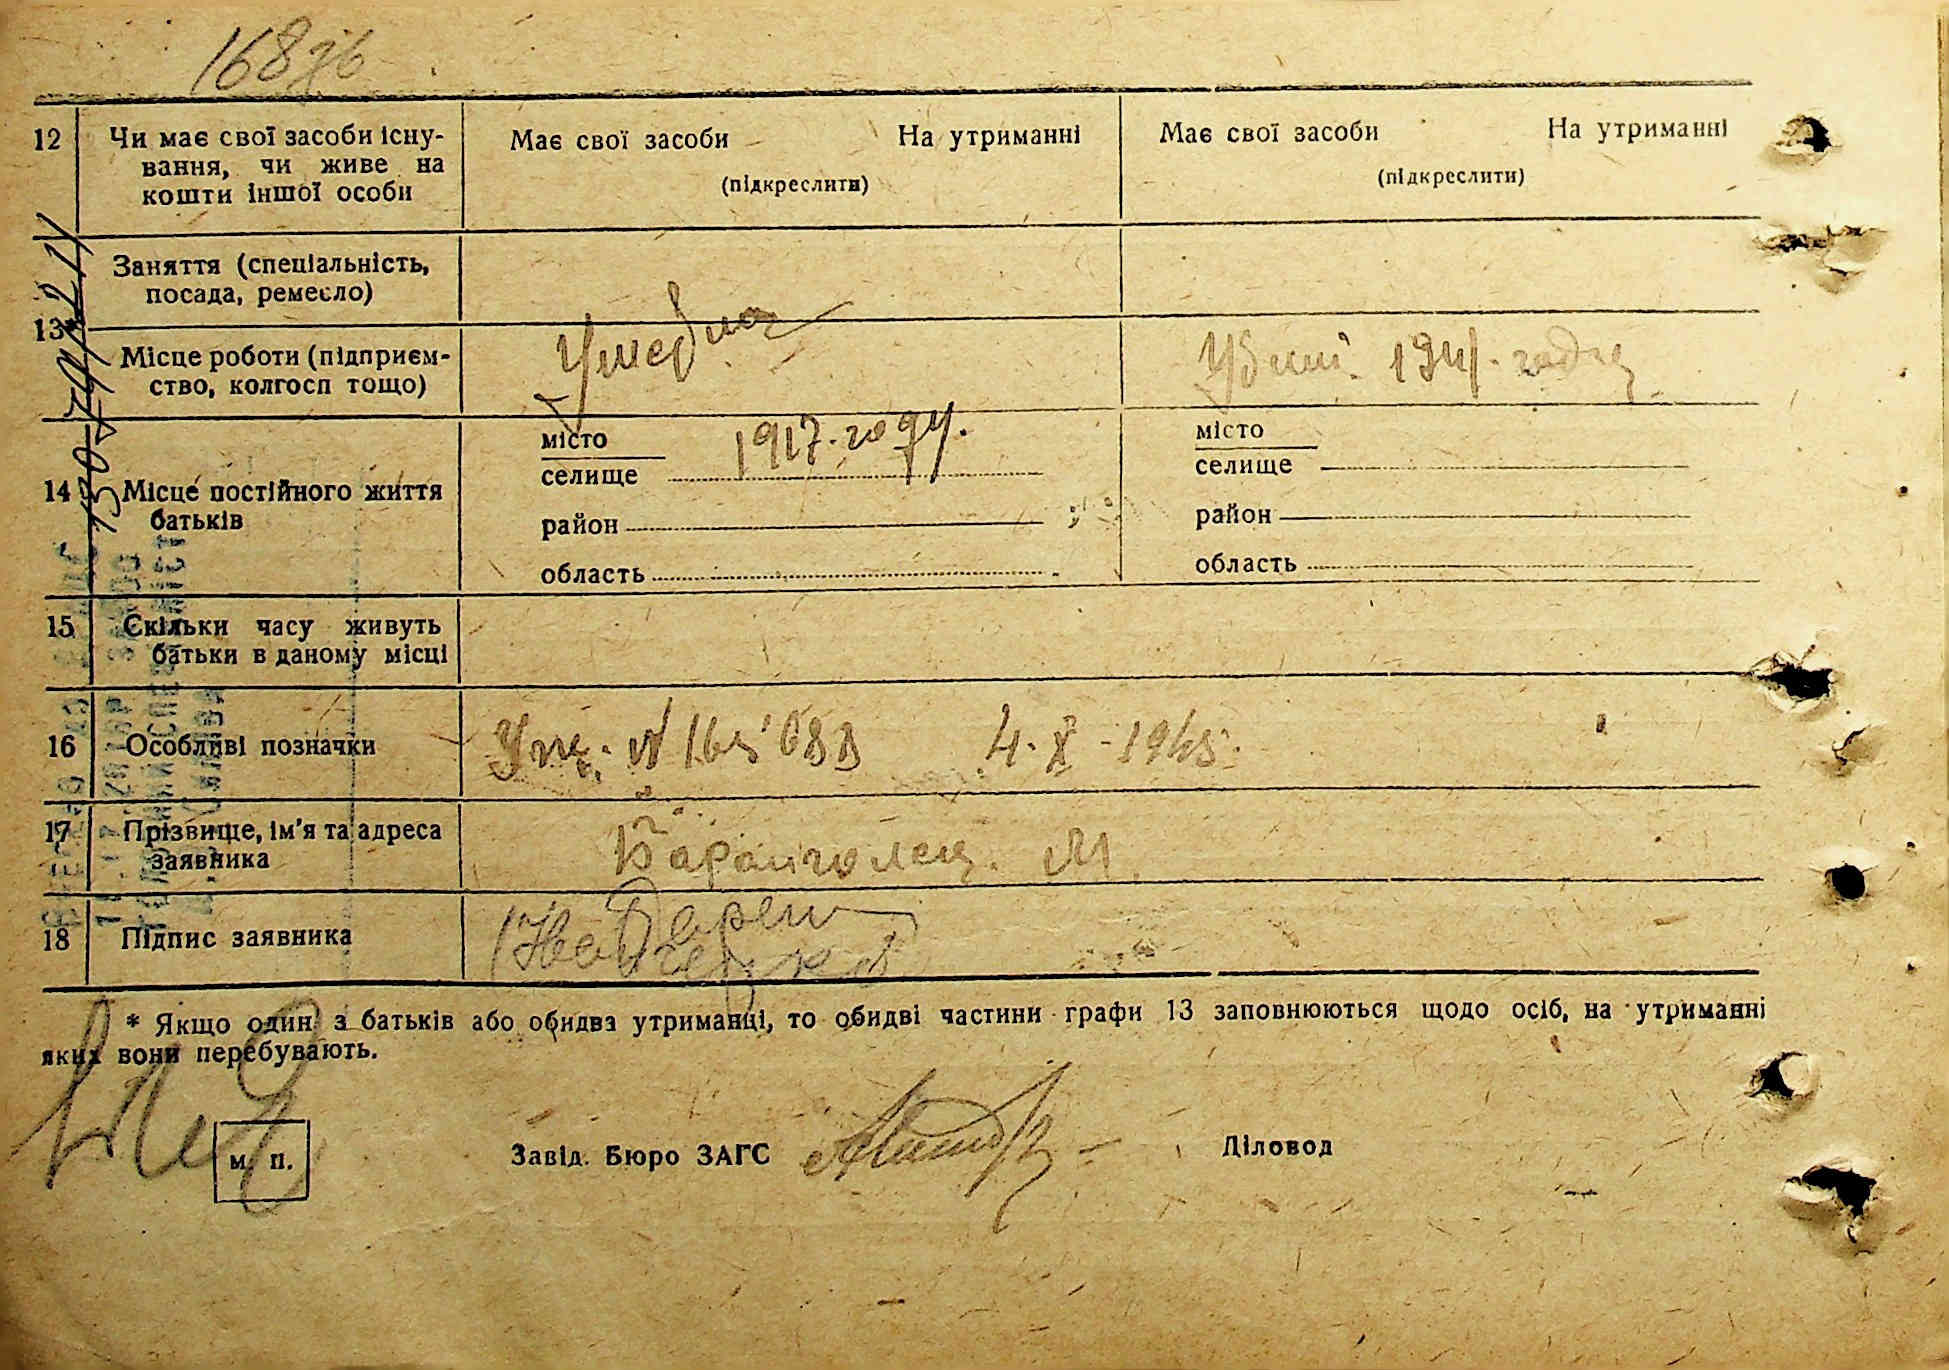 12 Чи має свої засоби існу-
вання, чи живе на
кошти іншої особи
Має свої засоби На утриманні
(підкреслити)
Має свої засоби На утриманні
(підкреслити)
13*
Заняття (спеціальність,
посада, ремесло)
Місце роботи (підприєм-
ство, колгосп тощо)
Умерла
1917. году.
Убит 1941. года
14 Місце постійного життя
батьків
місто
селище
район
область
місто
селище
район
область
15 Скільки часу живуть
батьки в даному місці
16 Особливі позначки
4. X - 1945.
17 Прізвище, ім'я та адреса
заявника
М
18 Підпис заявника
* Якщо один з батьків або обидва утриманці, то обидві частини графи 13 заповнюються щодо осіб, на утриманні
яких вони перебувають.
м. п.
Завід. Бюро ЗАГС
Діловод